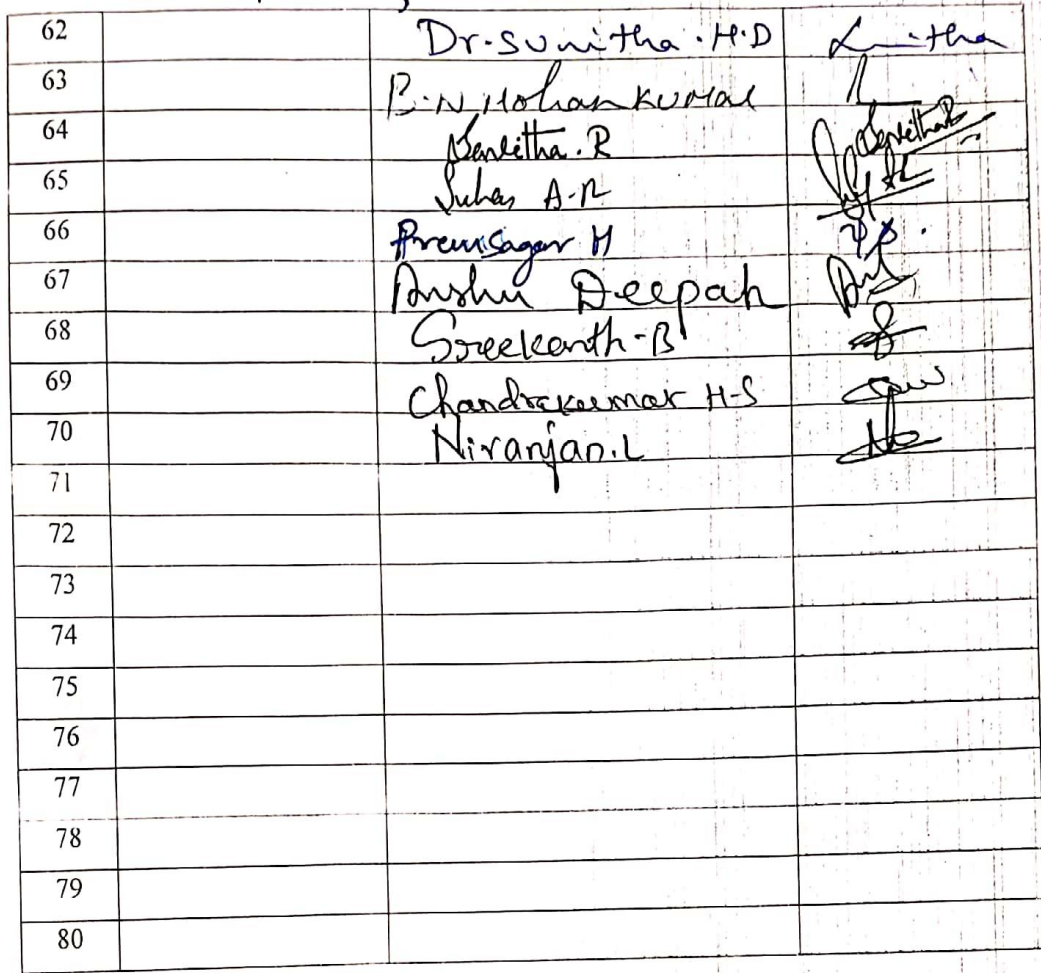 62 Dr. Sunitha. H.D
63 B.N Mohan Kumar
64 R
65 Suhas A.R
66 Premsagar H
67 Anshu Deepak
68 Sreekanth-B
69 Chandrakumar H-S
70 Niranjan.L
71
72
73
74
75
76
77
78
79
80